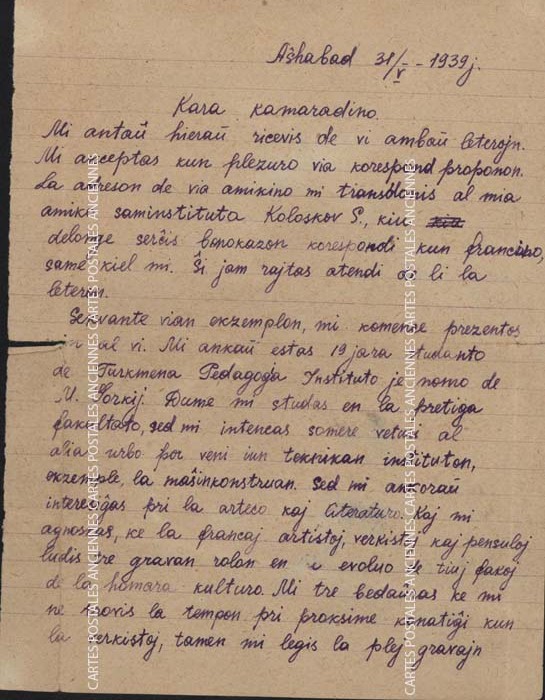 Aŝhabad 31/V - 1939 j.
Kara kamaradino.
Mi antaŭ hieraŭ ricevis de vi ambaŭ leterojn.
Mi akceptas kun plezuro via korespond proponon.
La adreson de via amikino mi transdonis al mia
amiko saminstituta Koloskov S., kiu
delonge serĉis bonokazon korespondi kun francino,
same kiel mi. Ŝi jam rajtas atendi de li la
leteron.
Servante vian ekzemplon, mi komence prezentos
min al vi. Mi ankaŭ estas 19 jara studanto
de Turkmena Pedagogia Instituto je nomo de
M. Gorkij. Dume mi studas en la pretiga
fakultato, sed mi intencas somere veturi al
alia urbo por veni iun teknikan instituton,
ekzemple, la maŝinkonstruan. Sed mi ankoraŭ
interesiĝas pri la arteco kaj literaturo. Kaj mi
agnoskas, ke la francaj artistoj, verkistoj kaj pensuloj
ludis tre gravan rolon en evoluo de tiuj fakoj
de la homara kulturo. Mi tre bedaŭras ke mi
ne trovis la tempon pri proksime konatiĝi kun
la verkistoj, tamen mi legis la plej gravajn
CARTES POSTALES ANCIENNES CARTES POSTALES ANCIENNES CARTES POSTALES ANCIENNES
CARTES POSTALES ANCIENNES CARTES POSTALES ANCIENNES CARTES POSTALES ANCIENNES